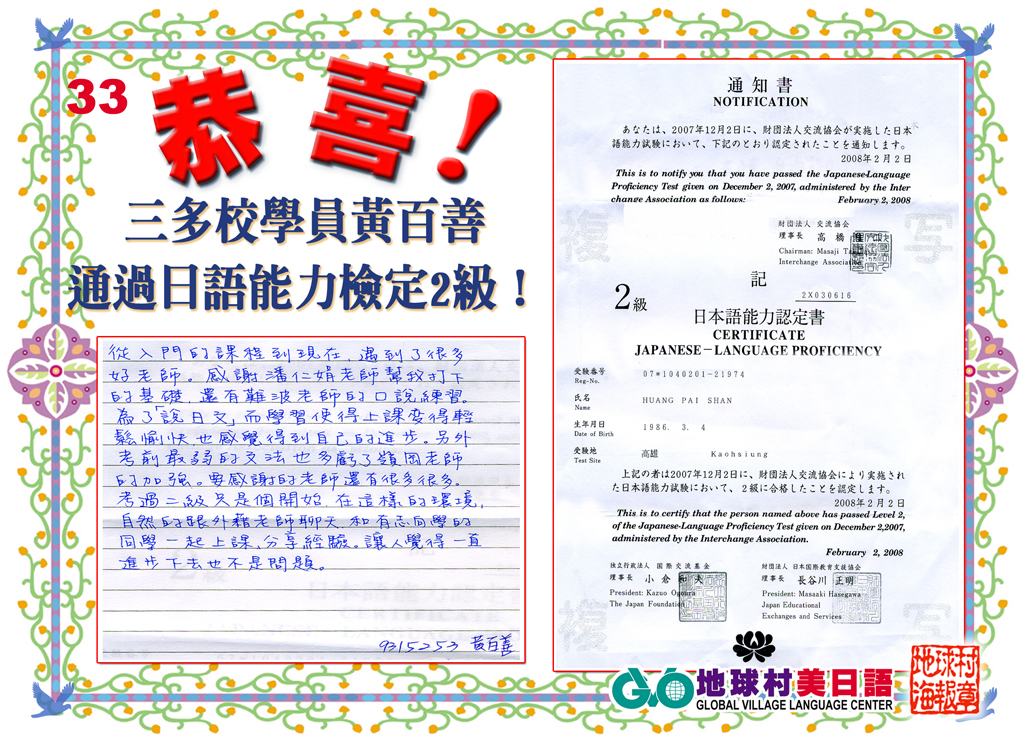 33
恭喜!
三多校學員黃百善
通過日語能力檢定2級！
從入門的課程到現在，遇到了很多
好老師。感謝潘仁娟老師幫我打下
的基礎，還有難波老師的口說練習。
為了「說日文」而學習使得上課變得輕
鬆愉快，也感覺得到自己的進步。另外
考前最弱的文法也多虧了嶺岡老師
的加強。要感謝的老師還有很多很多。
考過二級只是個開始，在這樣的環境，
自然的跟外籍老師聊天，和有志同學的
同學一起上課，分享經驗。讓人覺得一直
進步下去也不是問題。
9315253 黃百善
通知書
NOTIFICATION
あなたは、2007年12月2日に、財団法人交流協会が実施した日本
語能力試験において、下記のとおり認定されたことを通知します。
2008年2月2日
This is to notify you that you have passed the Japanese-Language
Proficiency Test given on December 2, 2007, administered by the Inter
change Association as follows: February 2, 2008
複 写
財団法人 交流協会
理事長 高橋
Chairman: Masaji
Interchange Association
記
2級
2X030616
日本語能力認定書
CERTIFICATE
JAPANESE－LANGUAGE PROFICIENCY
受験番号 07*1040201-21974
Reg-No.
氏名 HUANG PAI SHAN
Name
生年月日 1986. 3. 4
Date of Birth
受験地 高雄 Kaohsiung
Test Site
上記の者は2007年12月2日に、財団法人交流協会により実施され
た日本語能力試験において、2級に合格したことを認定します。
2008年2月2日
This is to certify that the person named above has passed Level 2,
of the Japanese-Language Proficiency Test given on December 2,2007,
administered by the Interchange Association.
February 2, 2008
独立行政法人 国際交流基金
理事長 小倉和夫
President: Kazuo Ogoura
The Japan Foundation
財団法人 日本国際教育支援協会
理事長 長谷川 正明
President: Masaaki Hasegawa
Japan Educational
Exchanges and Services
複 写
GVO 地球村美日語
GLOBAL VILLAGE LANGUAGE CENTER
地球村
海報章